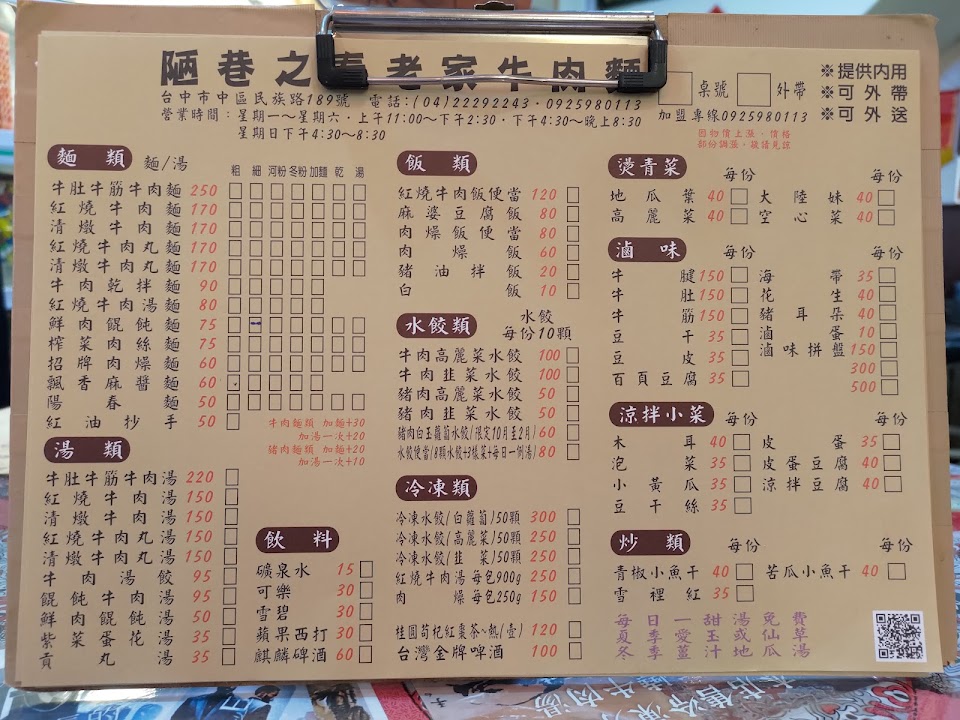 陋巷之春老家牛肉麵
台中市中區民族路189號 電話:(04)22292243·0925980113
營業時間:星期一～星期六·上午11:00～下午2:30·下午4:30～晚上8:30
星期日下午4:30～8:30
桌號 外帶
加盟專線0925980113
因物價上漲,價格
部份調漲,敬請見諒
※提供內用
※可外帶
※可外送
麵類 麵/湯 粗 細 河粉 冬粉 加麵 乾 湯
牛肚牛筋牛肉麵 250
紅燒牛肉麵 170
清燉牛肉麵 170
紅燒牛肉丸麵 170
清燉牛肉丸麵 170
牛肉乾拌麵 90
紅燒牛肉湯麵 80
鮮肉餛飩麵 75
榨菜肉絲麵 75
招牌肉燥麵 60
飄香麻醬麵 60
陽春麵 50
紅油抄手 50
牛肉麵類 加麵+30
加湯一次+20
豬肉麵類 加麵+20
加湯一次+10
湯類
牛肚牛筋牛肉湯 220
紅燒牛肉湯 150
清燉牛肉湯 150
紅燒牛肉丸湯 150
清燉牛肉丸湯 150
牛肉湯餃 95
餛飩牛肉湯 95
鮮肉餛飩湯 50
紫菜蛋花湯 35
貢丸湯 35
飲料
礦泉水 15
可樂 30
雪碧 30
蘋果西打 30
麒麟碑酒 60
飯類
紅燒牛肉飯便當 120
麻婆豆腐飯 80
肉燥飯便當 80
肉燥飯 60
豬油拌飯 20
白飯 10
水餃類 水餃
每份10顆
牛肉高麗菜水餃 100
牛肉韭菜水餃 100
豬肉高麗菜水餃 50
豬肉韭菜水餃 50
豬肉白玉蘿蔔水餃/限定10月至2月/ 60
水餃便當/8顆水餃+3樣菜+每日一例湯/ 80
冷凍類
冷凍水餃/白蘿蔔/50顆 300
冷凍水餃/高麗菜/50顆 250
冷凍水餃/韭菜/50顆 250
紅燒牛肉湯每包900g 250
肉燥每包250g 150
桂圓荀杞紅棗茶~熱/壺/ 120
台灣金牌啤酒 100
燙青菜 每份 每份
地瓜葉 40 大陸妹 40
高麗菜 40 空心菜 40
滷味 每份 每份
牛腱 150 海帶 35
牛肚 150 花生 40
牛筋 150 豬耳朵 40
豆干 35 滷蛋 10
豆皮 35 滷味拼盤 150
百頁豆腐 35 300
500
涼拌小菜 每份 每份
木耳 40 皮蛋 35
泡菜 35 皮蛋豆腐 40
小黃瓜 35 涼拌豆腐 40
豆干絲 35
炒類 每份 每份
青椒小魚干 40 苦瓜小魚干 40
雪裡紅 35
每日一甜湯免費
夏季愛玉或仙草
冬季薑汁地瓜湯